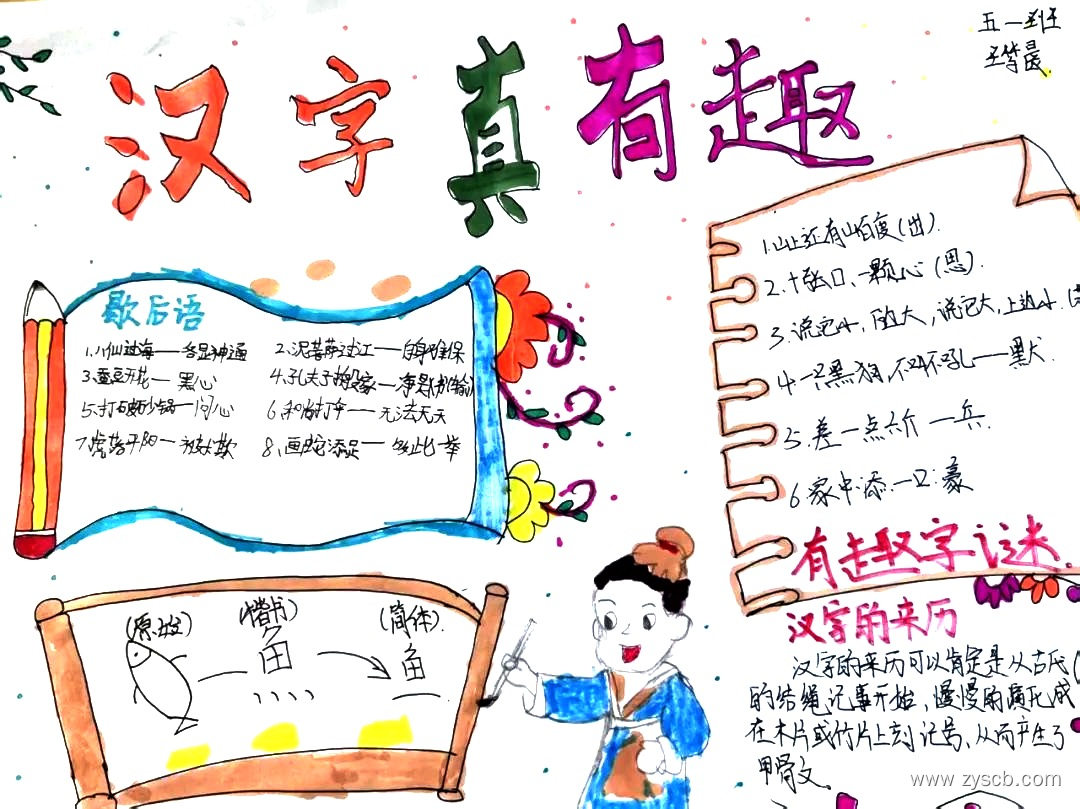 汉字真有趣
五一班
歇后语
1.八仙过海——各显神通
2.泥菩萨过江——自身难保
3.蚕豆开花——黑心
4.孔夫子搬家——净是书(输)
5.打破砂锅——问心
6.和尚打伞——无法无天
7.虎落平阳——被犬欺
8.画蛇添足——多此一举
1.山上还有山百度(出).
2.十张口、一颗心(思).
3.说它小,下边大,说它大,上边小.
4.一只黑狗,不叫不吼——默.
5.差一点六斤 一兵.
6.家中添一口:豪
有趣字谜
(原始)
(楷书)
魚
(简体).
鱼
汉字的来历
汉字的来历可以肯定是从古代
的结绳记事开始,慢慢的演化成
在木片或竹片上刻记号,从而产生了
甲骨文
www.zyscb.com